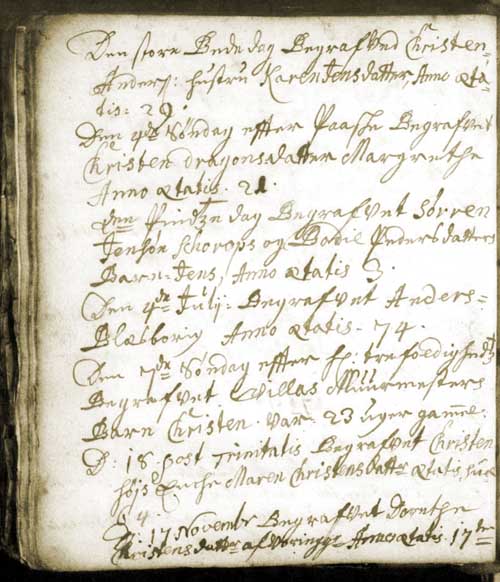 Den store Bede dag Begrafved Christen
Anders: hustru Karen Jensdatter, Anno Æta-
tis: 29.
Den 4de Søndag effter Paasche Begrafvet
Christen dragons datter Margrethe
Anno Ætatis. 21.
den Pindtze dag Begrafvet Sørren
Jensøn Schorops og Bodil Pedersdatters
Barn Jens, Anno Ætatis 3.
Den 4de Julij: Begrafvet Anders
Blæsborg Anno Ætatis. 74.
Den 7de Søndag effter h: trefoldighed
Begrafvet Willas Muurmesters
Barn Christen. var. 23 uger gammel:
D: 18. post Trinitatis Begrafvet Christen
Højs Enche Maren Christensdatter Ætatis suæ
4.
D: 17 Novembr Begrafvet Dorethe
Christens datter af Anno Ætatis. 17